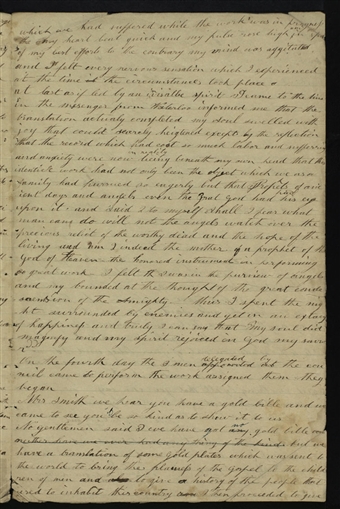 which we had suffered while the work was in progress
my heart beat quick and my pulse rose high in spite
of my best efforts to the contrary my mind was agitated
and I felt every nervous sensation which I experienced
at the time the circumstances took place
at last as if led by an invisible spirit I came to the time
in the messenger from Waterloo informed me that the
translation actualy completed my soul swelled with
joy that could scarcely hightened except by the reflection
that the record which had cost so much labor and suffering
and anxiety were now in reality being beneath my own head that the
identick work had not only been the object which we as a
family had pursued so eagerly but that Prophets of anc
ient days and angels even the great God had his eye
upon it. and said I to myself shall I fear what
man can do will not the angels watch over the
precious relict of the worthy dead and the hope of the
living and am I indeed the mother of a prophet of the
God of Heaven the honored instrument in performing
so great work I felt that I was in the purview of angels
and my bounded at the thought of the great conde
scension of the Almighty thus I spent the nig
ht surrounded by enemies and yet in an extacy
of happiness and truly I can say that my soul did
magnify and my spirit rejoiced in God my savi
r
On the fourth day the 3 men delegated by the coun
cil came to perform the work assigned them they
began
Mrs Smith we hear you have a gold bible and we
came to see you be so kind as to show it to us
No gentlemen said I we have got no gold bible
neither have we ever had any thing of the kind but we
have a translation of some gold plates which was sent to
the world to bring the plainess of the gospel to the child
ren of men and to give a history of the people that
used to inhabit this country I then proceeded to give